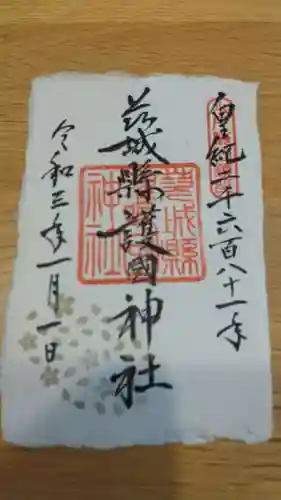 皇紀二千六百八十一年
茨城縣護國神社
令和三年一月一日
茨城縣
護國
神社